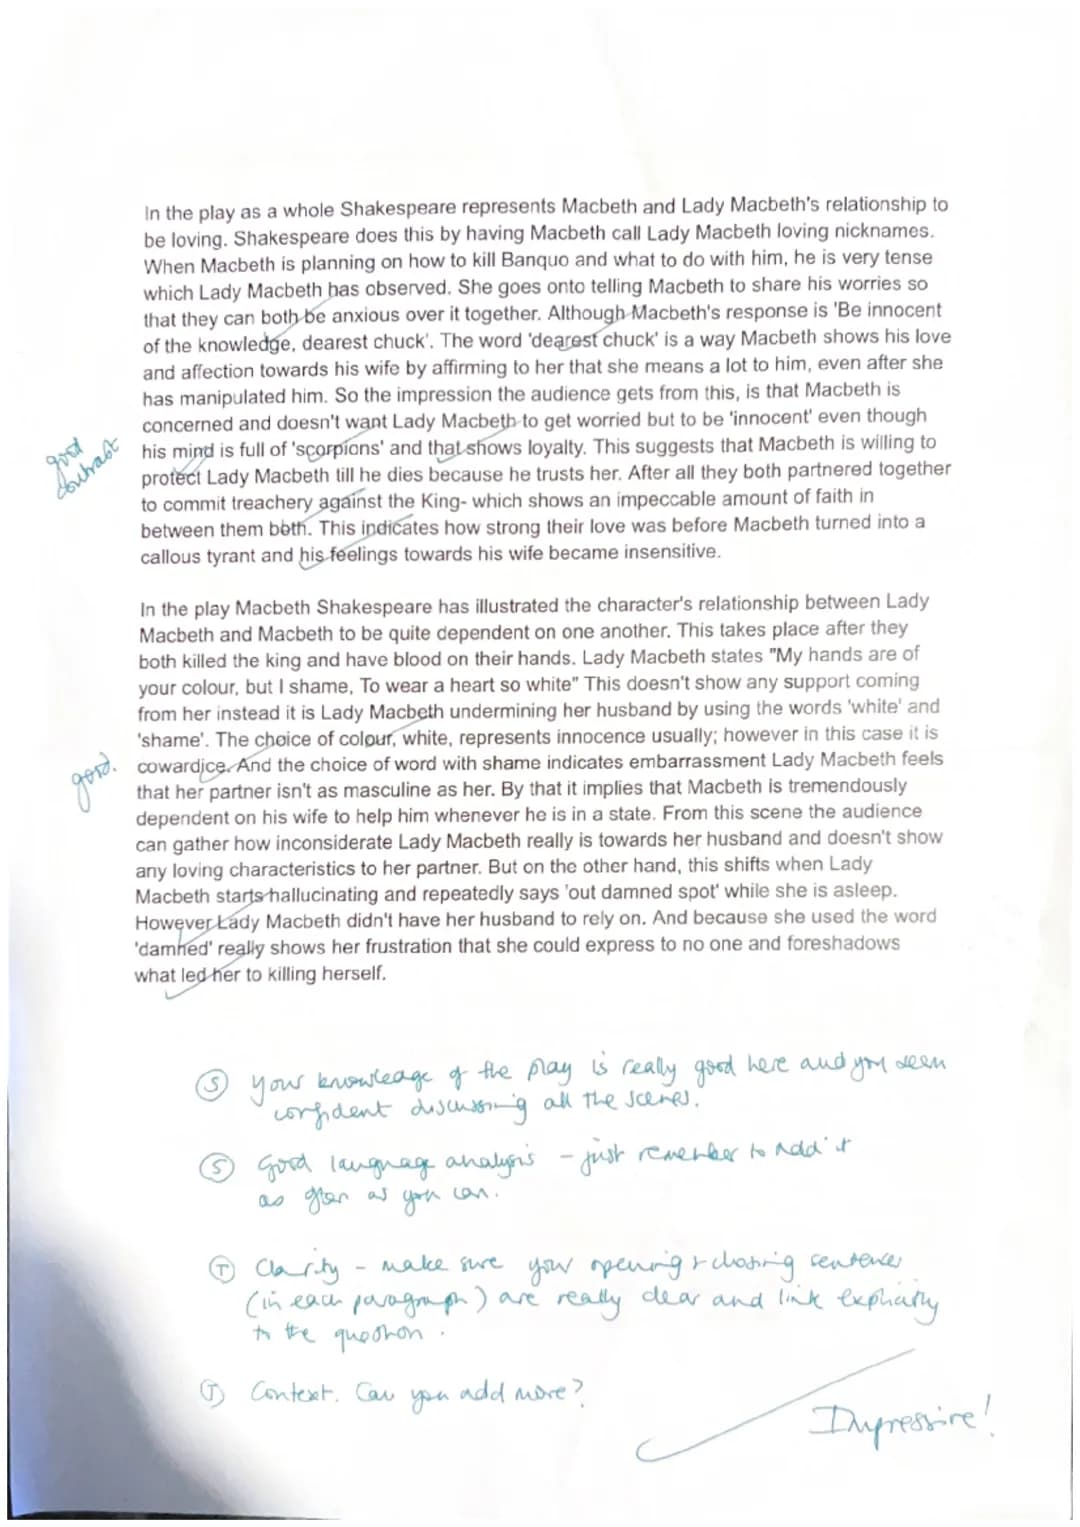 In the play as a whole Shakespeare represents Macbeth and Lady Macbeth's relationship to
be loving. Shakespeare does this by having Macbeth call Lady Macbeth loving nicknames.
When Macbeth is planning on how to kill Banquo and what to do with him, he is very tense
which Lady Macbeth has observed. She goes onto telling Macbeth to share his worries so
that they can both be anxious over it together. Although Macbeth's response is 'Be innocent
of the knowledge, dearest chuck'. The word 'dearest chuck' is a way Macbeth shows his love
and affection towards his wife by affirming to her that she means a lot to him, even after she
has manipulated him. So the impression the audience gets from this, is that Macbeth is
concerned and doesn't want Lady Macbeth to get worried but to be 'innocent' even though
good
contrast
his mind is full of 'scorpions' and that shows loyalty. This suggests that Macbeth is willing to
protect Lady Macbeth till he dies because he trusts her. After all they both partnered together
to commit treachery against the King- which shows an impeccable amount of faith in
between them both. This indicates how strong their love was before Macbeth turned into a
callous tyrant and his feelings towards his wife became insensitive.
In the play Macbeth Shakespeare has illustrated the character's relationship between Lady
Macbeth and Macbeth to be quite dependent on one another. This takes place after they
both killed the king and have blood on their hands. Lady Macbeth states "My hands are of
your colour, but I shame, To wear a heart so white" This doesn't show any support coming
from her instead it is Lady Macbeth undermining her husband by using the words 'white' and
'shame'. The choice of colour, white, represents innocence usually; however in this case it is
good.
cowardice. And the choice of word with shame indicates embarrassment Lady Macbeth feels
that her partner isn't as masculine as her. By that it implies that Macbeth is tremendously
dependent on his wife to help him whenever he is in a state. From this scene the audience
can gather how inconsiderate Lady Macbeth really is towards her husband and doesn't show
any loving characteristics to her partner. But on the other hand, this shifts when Lady
Macbeth starts hallucinating and repeatedly says 'out damned spot' while she is asleep.
However Lady Macbeth didn't have her husband to rely on. And because she used the word
'damned' really shows her frustration that she could express to no one and foreshadows
what led her to killing herself.
S your knowledge of the play is really good here and you seem
confident discussing all the scenes.
S Good language analysis - just remember to add it
as often as you can.
T Clarity - make sure your opening & closing sentences
(in each paragraph) are really clear and link explicitly
to the question.
T Context. Can you add more?
Impressive!